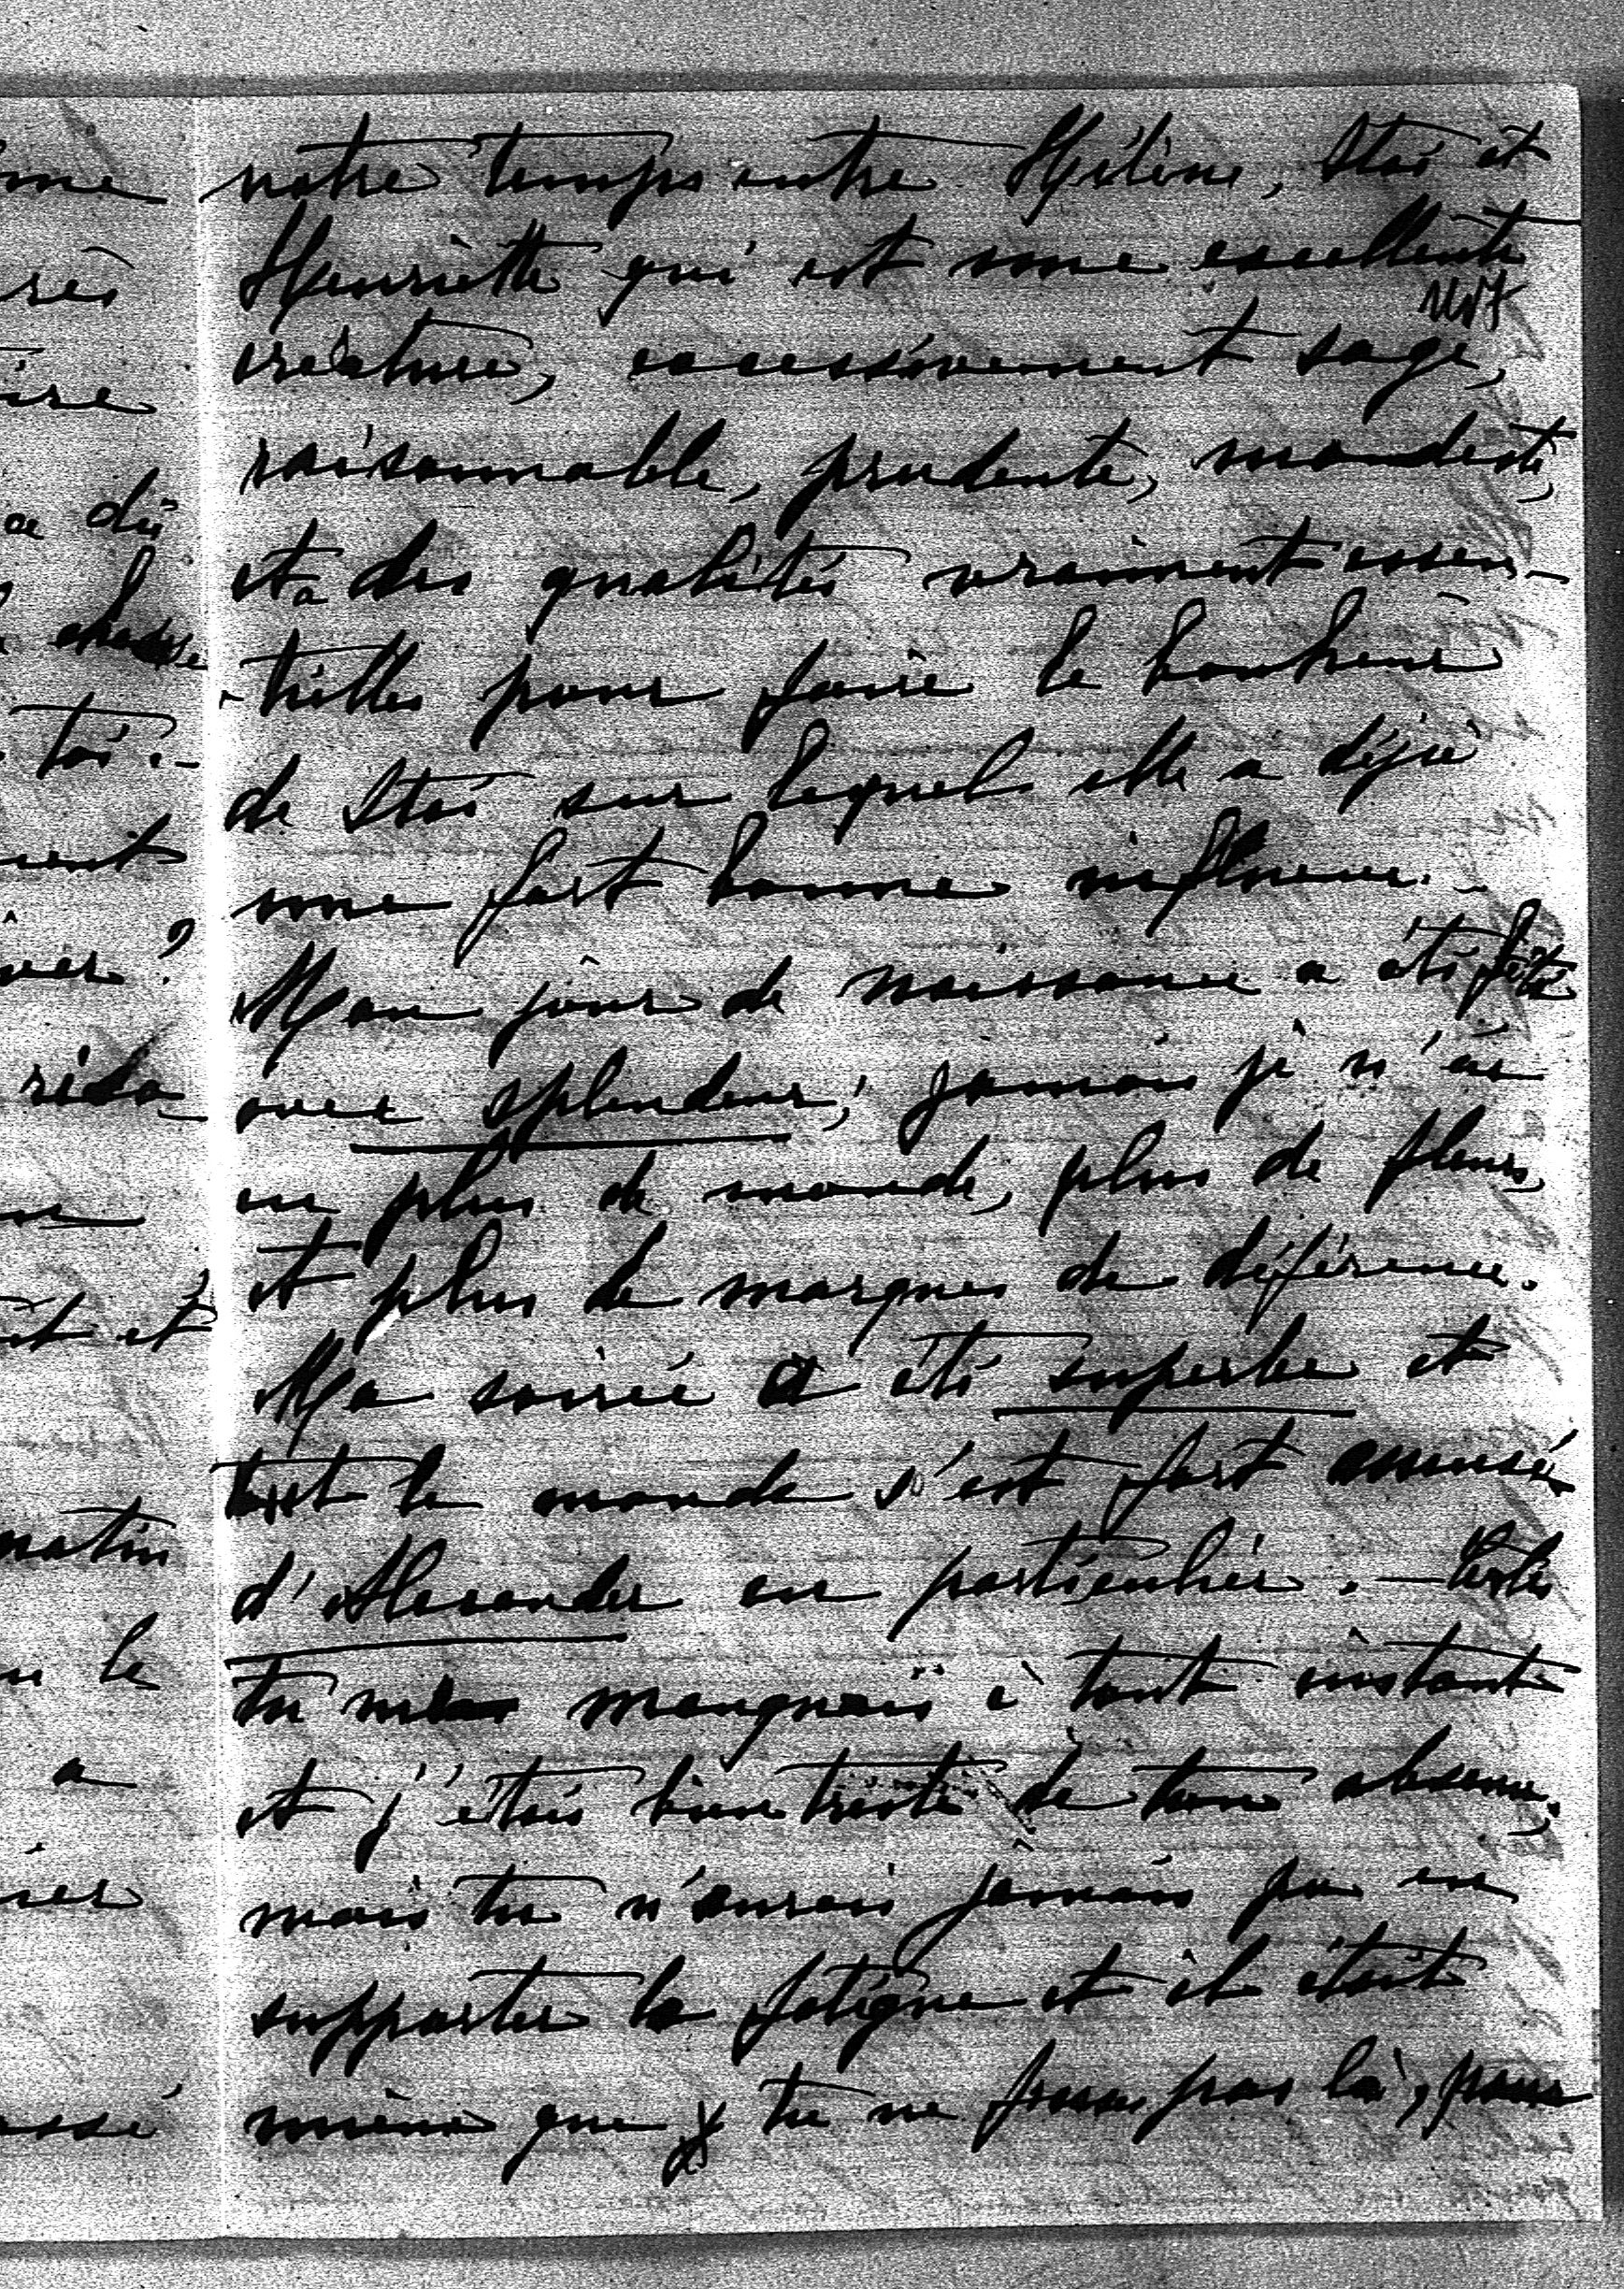 notre temps entre Hélène, Stoï et
Henriette qui est une excellente
créature, excessivement sage,
raisonnable, prudente, modeste,
et a des qualités vraiment essen-
-tielles pour faire le bonheur
de Stoï sur lequel elle a déjà
une fort bonne influence.
Mon jour de naissance a été fêté
avec splendeur; jamais je n'ai
eu plus de monde, plus de fleurs,
et plus de marques de déférence.
Ma soirée a été superbe et
tout le monde s'est fort amusé
d'Alexandre en particulier. —
tu me manquais à tout instant
et j'étais bien triste de ton absence,
mais tu n'aurais jamais pu en
supporter la fatigue et il était
mieux que tu ne fusses pas là, pour
me
rès
ire
a dû
chasse
toi.-
vent
ver?
et et
matin
le
a
ier
assé